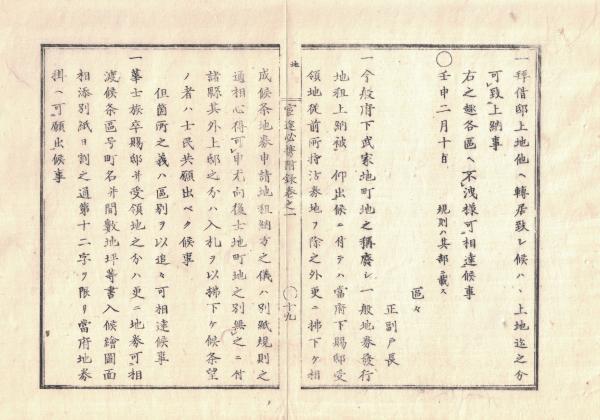 一拝借邸上地他ヘ轉居致シ候ハヽ上地迄之分
可致上納事
右之趣各區ヘ不洩様可相達候事
〇壬申二月十日 規則ハ其部ニ載ス
區々
正副戸長
一今般府下武家地町地之稱廢シ一般地券發行
地租上納被 仰出候ニ付テハ當府下賜邸受
領地從前所持沽券地ヲ除之外更ニ拂下ケ相
地
官途必携附録巻之一
〇十九
成候条地券申請地租納方之儀ハ別紙規則之
通相心得可申尤向後士地町地之別無之ニ付
諸縣其外上邸之分ハ入札ヲ以拂下ケ候条望
ノ者ハ士民共願出ベク候事
但箇所之義ハ區別ヲ以追々可相達候事
一華士族卒賜邸并受領地之分ハ更ニ地券可相
渡候条區号町名并間數地坪等書入候繪圖面
相添別紙日割之通第十二字ヲ限リ當府地券
掛ヘ可願出候事